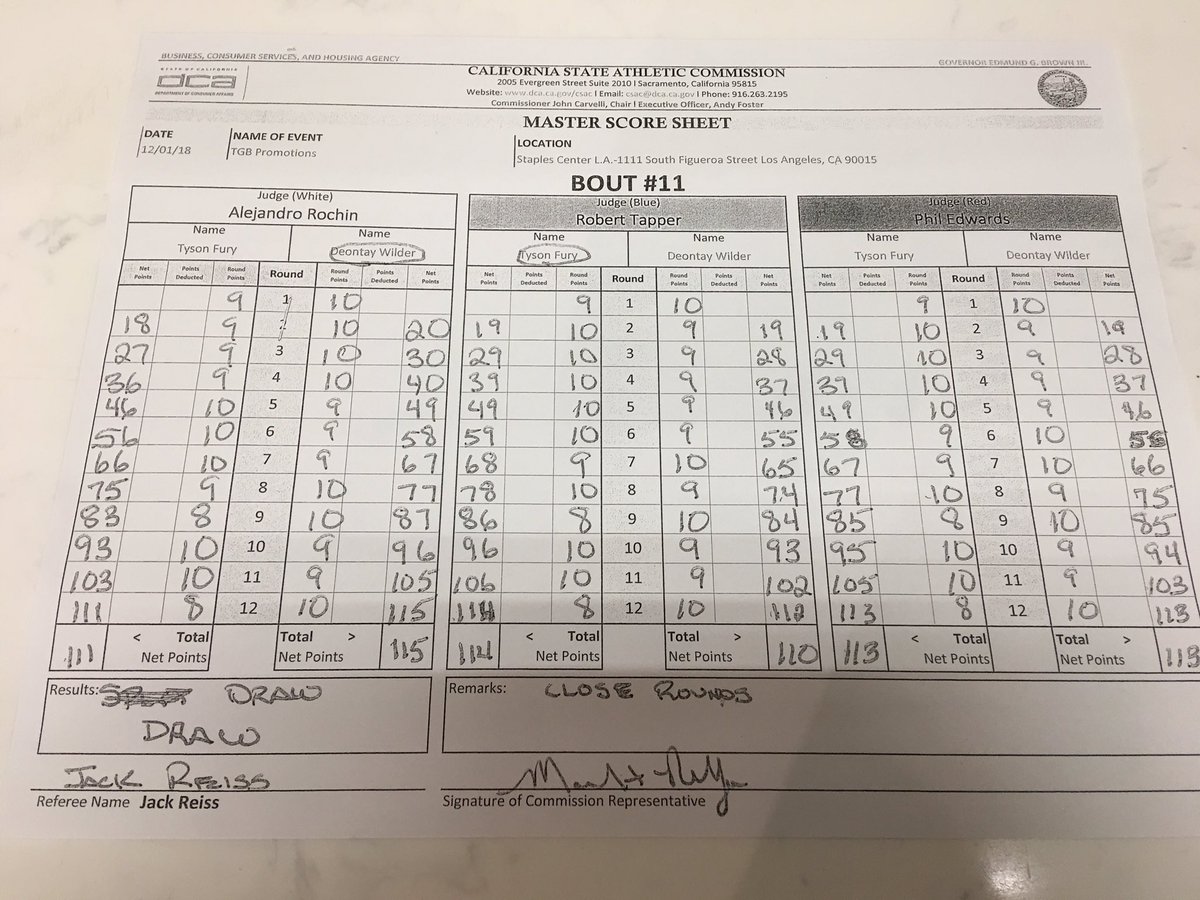 BUSINESS, CONSUMER SERVICES, AND HOUSING AGENCY GOVERNOR EDMUND G. BROWN JR.
STATE OF CALIFORNIA
dca
DEPARTMENT OF CONSUMER AFFAIRS
CALIFORNIA STATE ATHLETIC COMMISSION
2005 Evergreen Street Suite 2010 I Sacramento, California 95815
Website: www.dca.ca.gov/csac I Email: csac@dca.ca.gov I Phone: 916.263.2195
Commissioner John Carvelli, Chair I Executive Officer, Andy Foster
MASTER SCORE SHEET
DATE NAME OF EVENT LOCATION
12/01/18 TGB Promotions Staples Center L.A.-1111 South Figueroa Street Los Angeles, CA 90015
BOUT #11
Judge (White) Judge (Blue) Judge (Red)
Alejandro Rochin Robert Tapper Phil Edwards
Name Name Name Name Name Name
Tyson Fury Deontay Wilder Tyson Fury Deontay Wilder Tyson Fury Deontay Wilder
Net Points Points Deducted Round Points Round Round Points Points Deducted Net Points Net Points Points Deducted Round Points Round Round Points Points Deducted Net Points Net Points Points Deducted Round Points Round Round Points Points Deducted Net Points
9 1 10 9 1 10 9 1 10
18 9 2 10 20 19 10 2 9 19 19 10 2 9 19
27 9 3 10 30 29 10 3 9 28 29 10 3 9 28
36 9 4 10 40 39 10 4 9 37 39 10 4 9 37
46 10 5 9 49 49 10 5 9 46 49 10 5 9 46
56 10 6 9 58 59 10 6 9 55 58 9 6 10
66 10 7 9 67 68 9 7 10 65 67 9 7 10 66
75 9 8 10 77 78 10 8 9 74 77 10 8 9 75
83 8 9 10 87 86 8 9 10 84 85 8 9 10 85
93 10 10 9 96 96 10 10 9 93 95 10 10 9 94
103 10 11 9 105 106 10 11 9 102 105 10 11 9 103
111 8 12 10 115 8 12 10 113 8 12 10 113
111 < Total Net Points Total > Net Points 115 114 < Total Net Points Total > Net Points 110 113 < Total Net Points Total > Net Points 113
Results: DRAW
DRAW
Remarks: CLOSE ROUNDS
JACK REISS
Referee Name Jack Reiss
Signature of Commission Representative